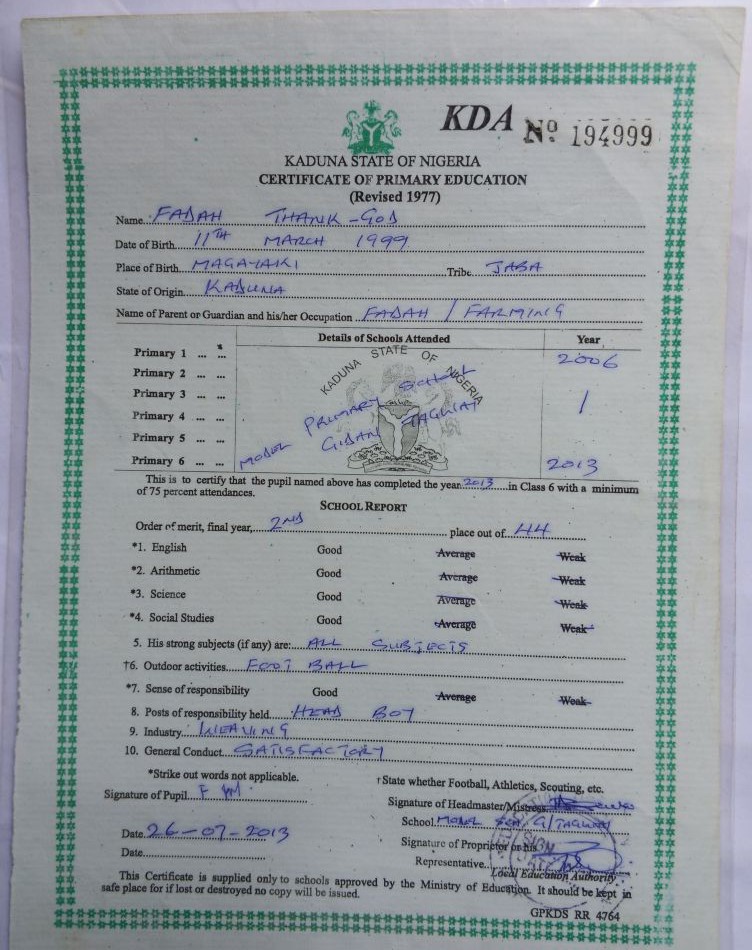 KDA No 194999
KADUNA STATE OF NIGERIA
CERTIFICATE OF PRIMARY EDUCATION
(Revised 1977)
Name FADAH THANK-GOD
Date of Birth 11TH MARCH 1999
Place of Birth MAGAYAKI Tribe JABA
State of Origin KADUNA
Name of Parent or Guardian and his/her Occupation FADAH / FARMING
Details of Schools Attended Year
Primary 1 ... ... 2006
Primary 2 ... ...
Primary 3 ... ...
Primary 4 ... ...
Primary 5 ... ...
Primary 6 ... ... 2013
KADUNA STATE OF NIGERIA
MODEL PRIMARY SCHOOL
GIDAN TAGWAI
This is to certify that the pupil named above has completed the year 2013 in Class 6 with a minimum
of 75 percent attendances.
SCHOOL REPORT
Order of merit, final year, 2ND place out of 44
*1. English Good Average Weak
*2. Arithmetic Good Average Weak
*3. Science Good Average Weak
*4. Social Studies Good Average Weak
5. His strong subjects (if any) are: ALL SUBJECTS
†6. Outdoor activities FOOT BALL
*7. Sense of responsibility Good Average Weak
8. Posts of responsibility held HEAD BOY
9. Industry WEAVING
10. General Conduct SATISFACTORY
*Strike out words not applicable. †State whether Football, Athletics, Scouting, etc.
Signature of Pupil Signature of Headmaster/Mistress
School MODEL SCH G/TAGWAI
Date 26-07-2013 Signature of Proprietor or his
Date Representative
Local Education Authority
This Certificate is supplied only to schools approved by the Ministry of Education. It should be kept in
safe place for if lost or destroyed no copy will be issued.
GPKDS RR 4764